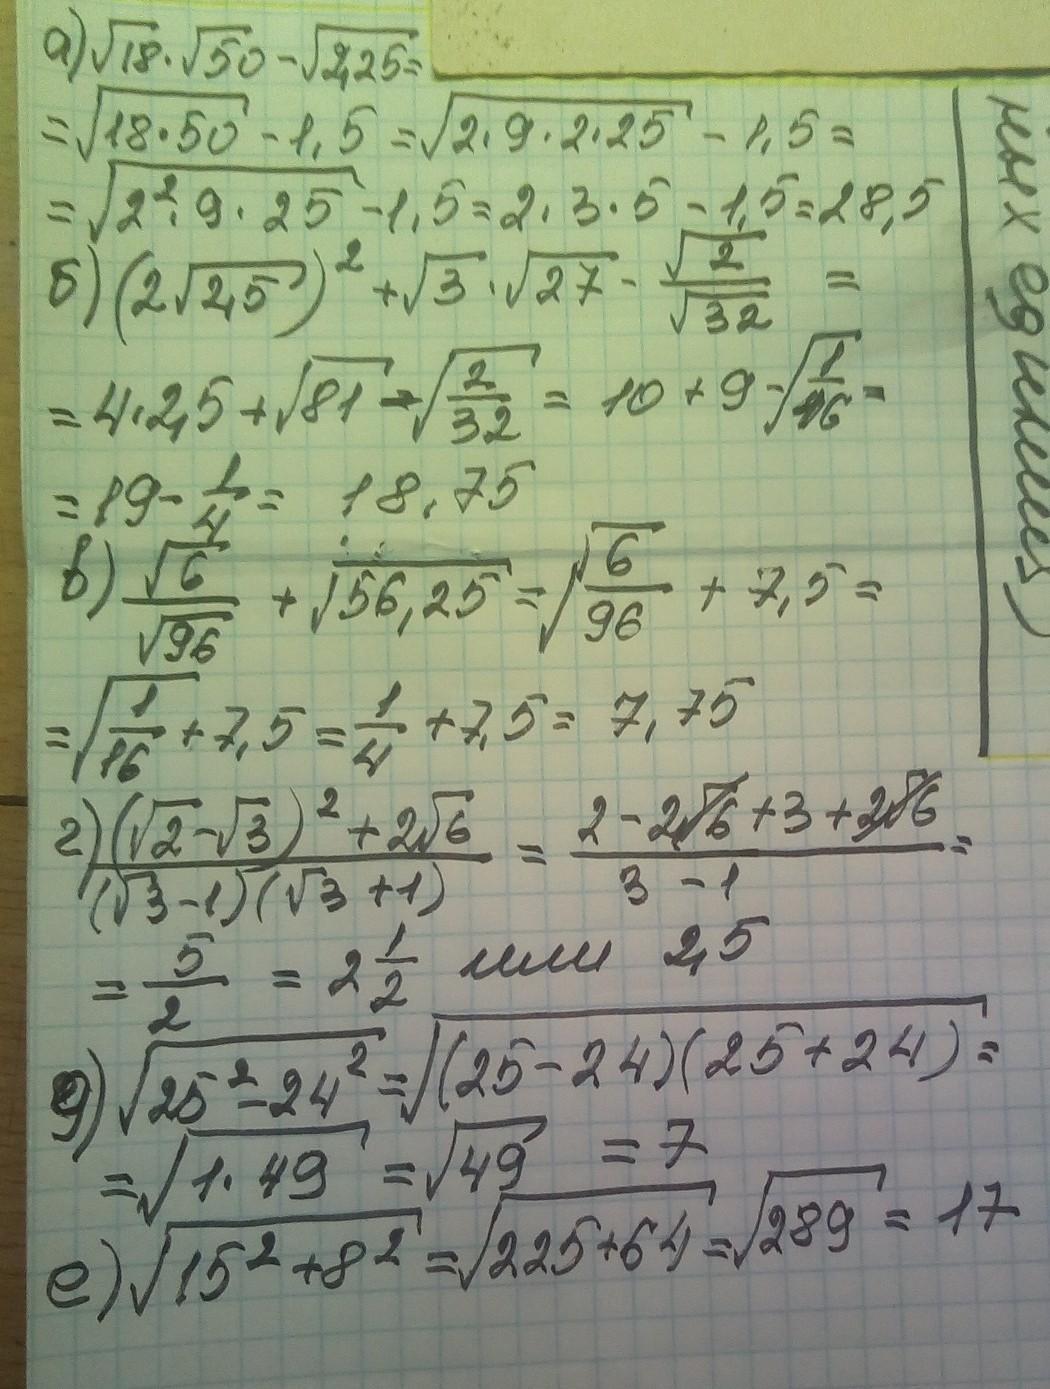 а) √18 · √50 - √2,25 =
= √(18 · 50) - 1,5 = √(2 · 9 · 2 · 25) - 1,5 =
= √(2² · 9 · 25) - 1,5 = 2 · 3 · 5 - 1,5 = 28,5
б) (2√2,5)² + √3 · √27 - √2/√32 =
= 4 · 2,5 + √81 - √(2/32) = 10 + 9 - √(1/16) =
= 19 - 1/4 = 18,75
в) √6/√96 + √56,25 = √(6/96) + 7,5 =
= √(1/16) + 7,5 = 1/4 + 7,5 = 7,75
г) ((√2 - √3)² + 2√6)/((√3 - 1)(√3 + 1)) = (2 - 2√6 + 3 + 2√6)/(3 - 1) =
= 5/2 = 2 1/2 или 2,5
д) √(25² - 24²) = √((25 - 24)(25 + 24)) =
= √(1 · 49) = √49 = 7
е) √(15² + 8²) = √(225 + 64) = √289 = 17
ных единиц)